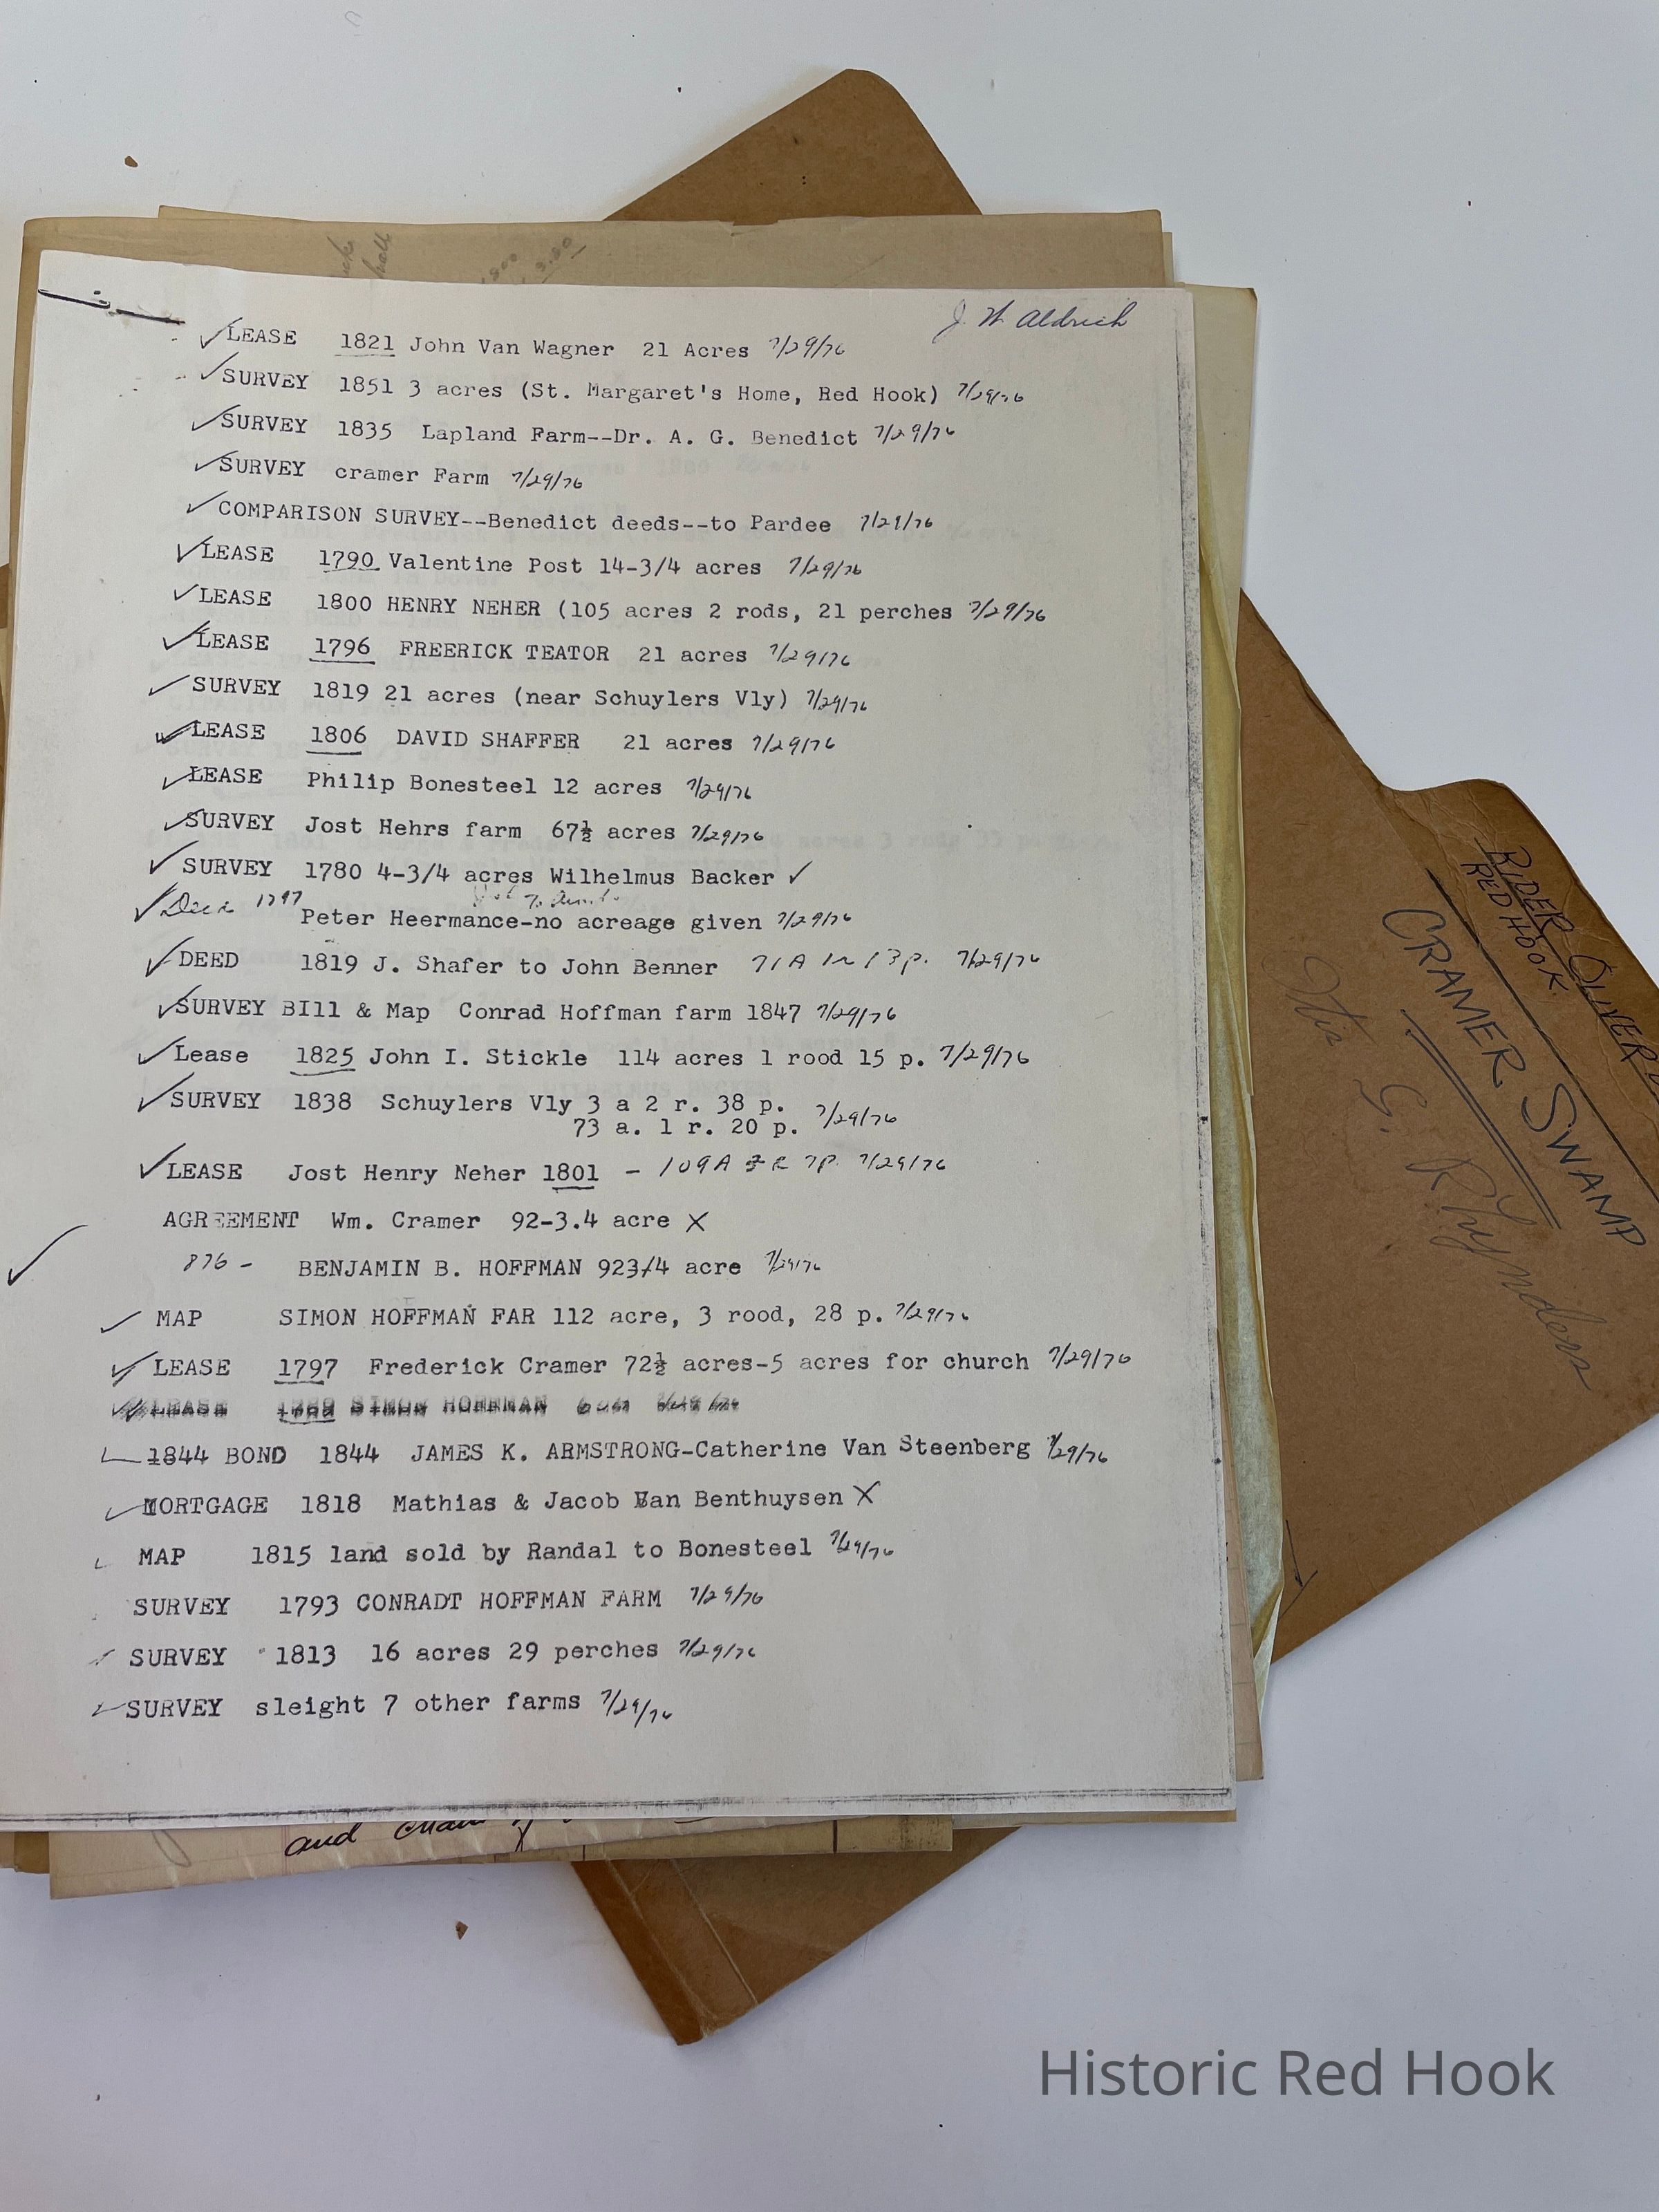 J W Aldrich
✓ LEASE 1821 John Van Wagner 21 Acres 7/29/76
✓ SURVEY 1851 3 acres (St. Margaret's Home, Red Hook) 7/29/76
✓ SURVEY 1835 Lapland Farm--Dr. A. G. Benedict 7/29/76
✓ SURVEY cramer Farm 7/29/76
✓ COMPARISON SURVEY--Benedict deeds--to Pardee 7/29/76
✓ LEASE 1790 Valentine Post 14-3/4 acres 7/29/76
✓ LEASE 1800 HENRY NEHER (105 acres 2 rods, 21 perches 7/29/76
✓ LEASE 1796 FREERICK TEATOR 21 acres 7/29/76
✓ SURVEY 1819 21 acres (near Schuylers Vly) 7/29/76
✓ LEASE 1806 DAVID SHAFFER 21 acres 7/29/76
✓ LEASE Philip Bonesteel 12 acres 7/29/76
✓ SURVEY Jost Hehrs farm 67½ acres 7/29/76
✓ SURVEY 1780 4-3/4 acres Wilhelmus Backer ✓
✓ Deed 1797 Peter Heermance-no acreage given 7/29/76
✓ DEED 1819 J. Shafer to John Benner 71A 1r 13p. 7/29/76
✓ SURVEY BIll & Map Conrad Hoffman farm 1847 7/29/76
✓ Lease 1825 John I. Stickle 114 acres 1 rood 15 p. 7/29/76
✓ SURVEY 1838 Schuylers Vly 3 a 2 r. 38 p. 7/29/76
73 a. 1 r. 20 p.
✓ LEASE Jost Henry Neher 1801 - 109A R 7P 7/29/76
AGREEMENT Wm. Cramer 92-3.4 acre X
✓ 876 - BENJAMIN B. HOFFMAN 923/4 acre 7/29/76
✓ MAP SIMON HOFFMAN FAR 112 acre, 3 rood, 28 p. 7/29/76
✓ LEASE 1797 Frederick Cramer 72½ acres-5 acres for church 7/29/76
✓ LEASE SIMON HOFFMAN
1844 BOND 1844 JAMES K. ARMSTRONG-Catherine Van Steenberg 7/29/76
✓ MORTGAGE 1818 Mathias & Jacob Van Benthuysen X
✓ MAP 1815 land sold by Randal to Bonesteel 7/29/76
SURVEY 1793 CONRADT HOFFMAN FARM 7/29/76
✓ SURVEY 1813 16 acres 29 perches 7/29/76
✓ SURVEY sleight 7 other farms 7/29/76
and
RIDER
RED HOOK.
OLIVER
CRAMER SWAMP
Otis G. Rhynders
Historic Red Hook